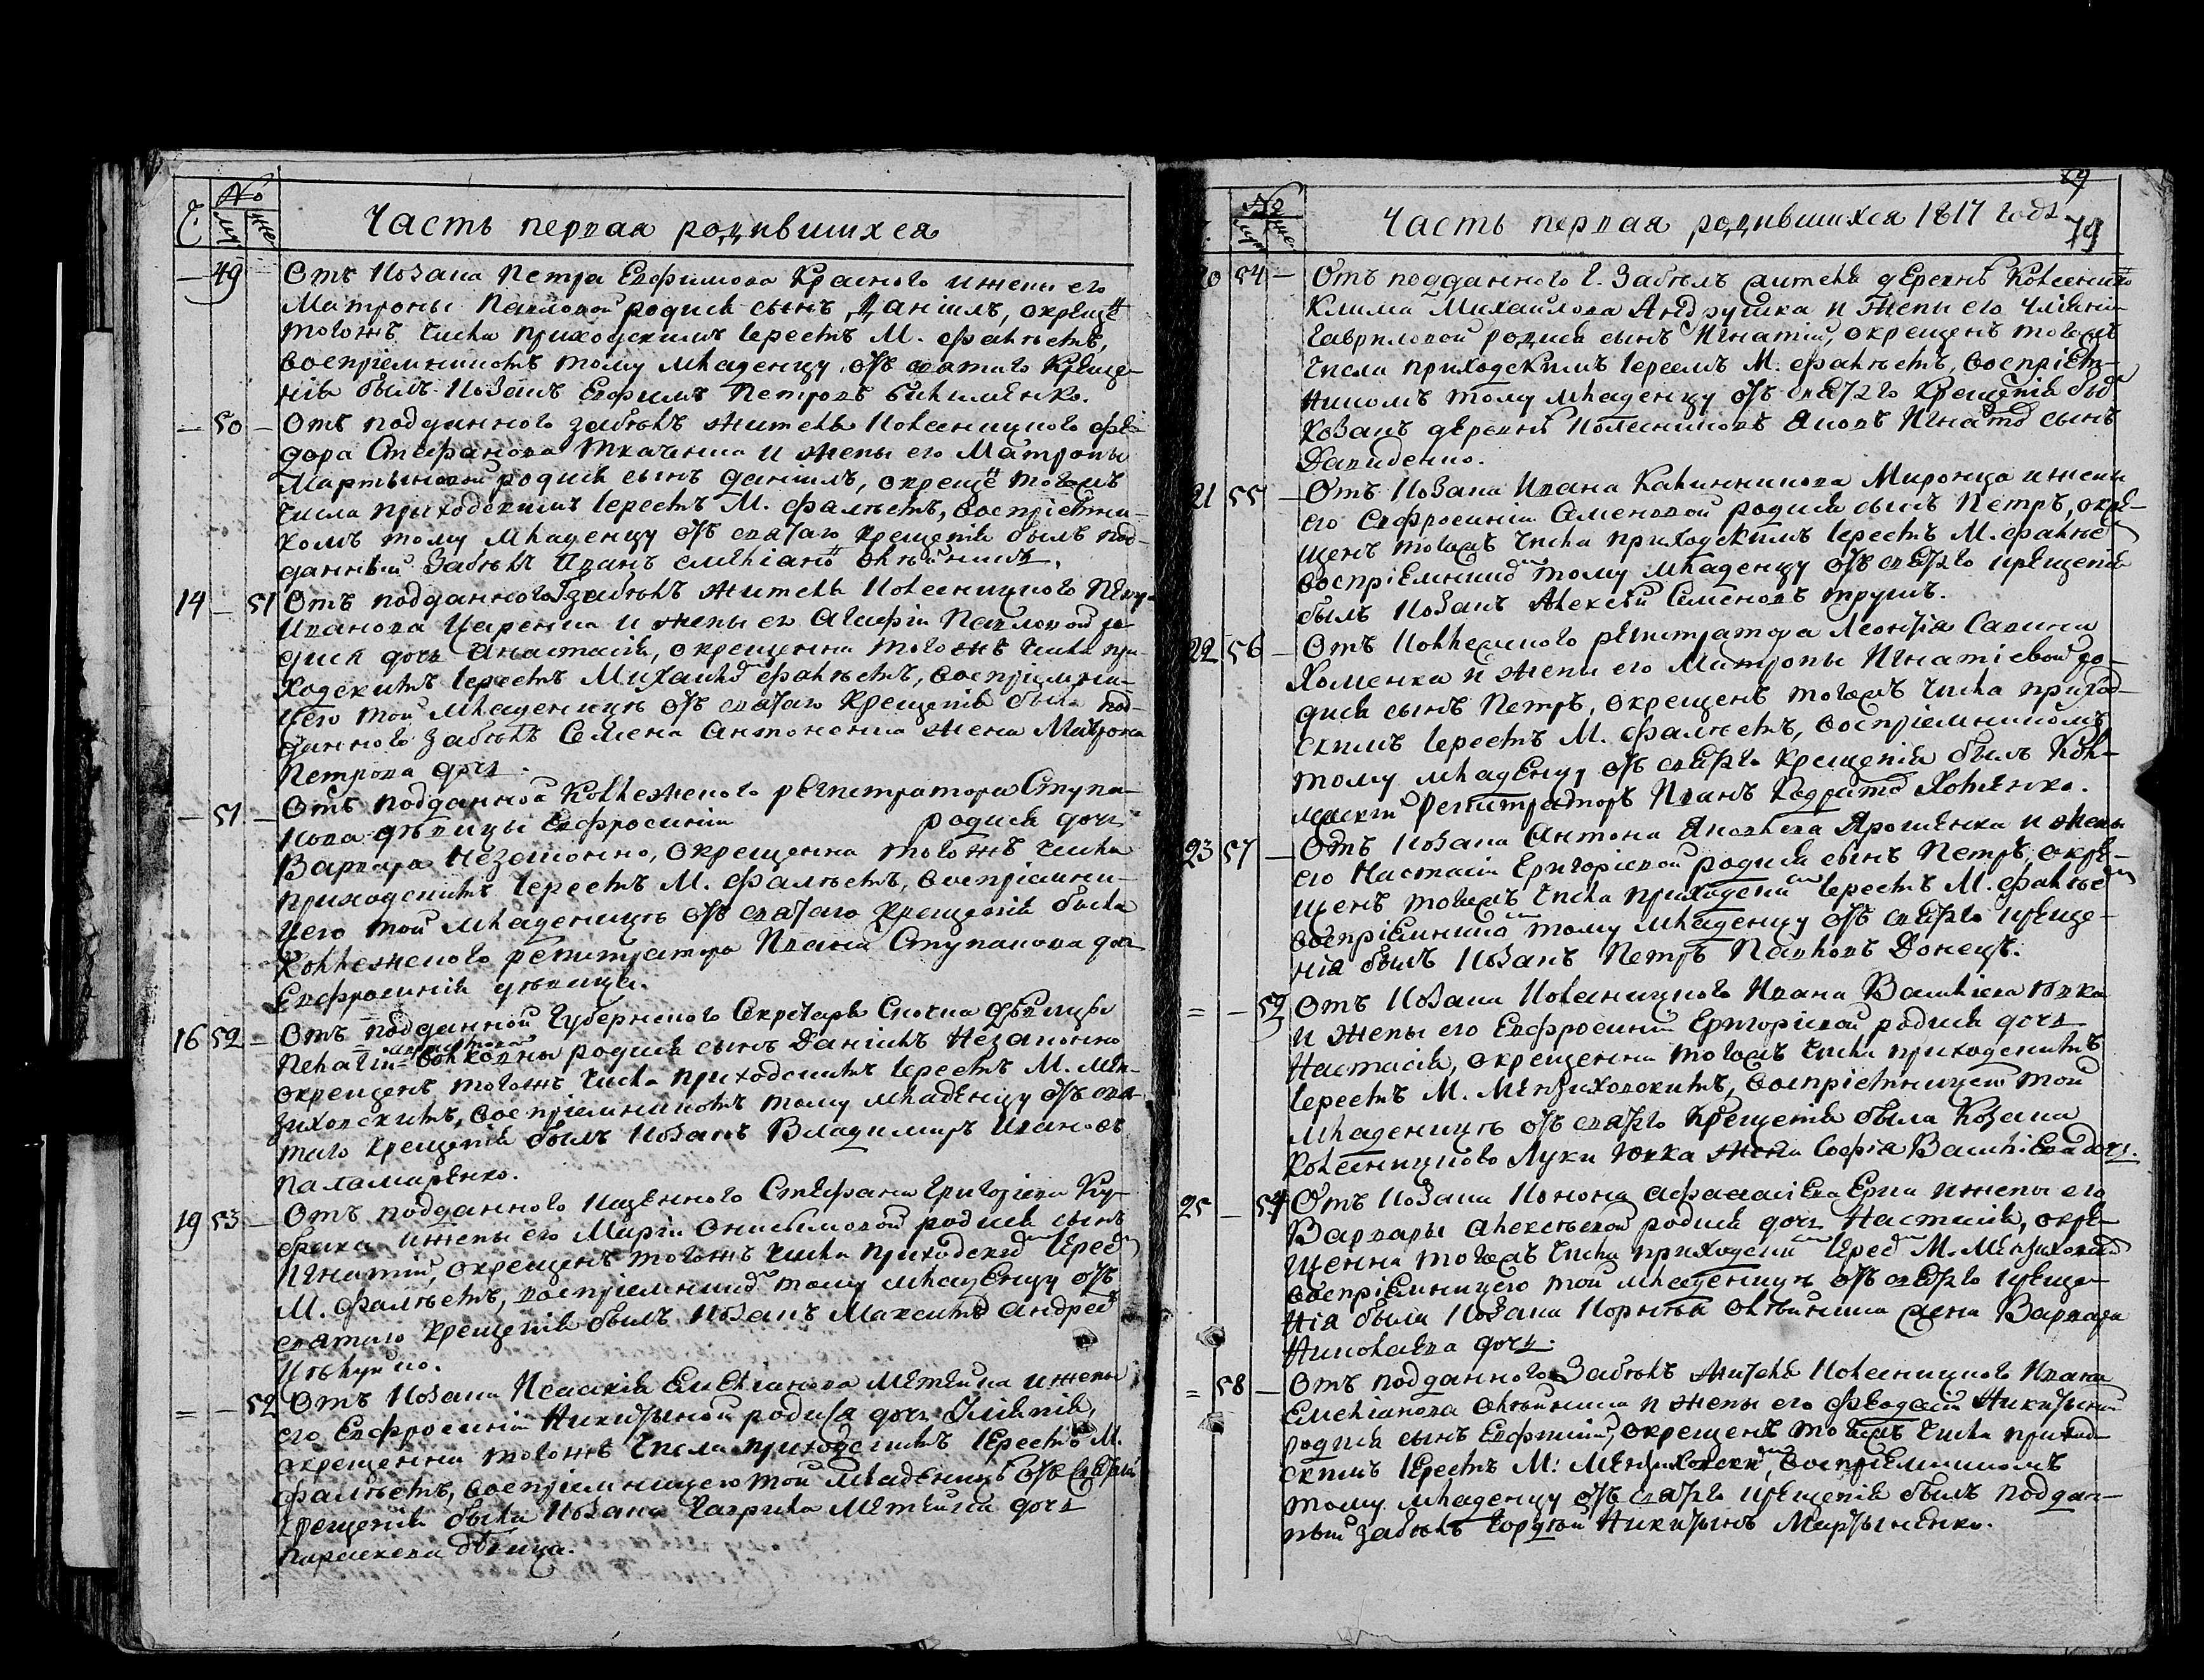 Часть первая родившихся
№
Отъ козака Петра Евфимова Красного и жены его
— 49 Матроны Павловой родися сынъ Даніилъ, окрещенъ
тогожъ числа приходскимъ Іереемъ М. Фалѣемъ,
воспріемникомъ тому младенцу отъ святаго Креще-
нія былъ козакъ Евфимъ Петровъ
— 50 — Отъ подданного Забѣлъ жителя Колесницкого Фео-
дора Стефанова Ткаченка и жены его Матроны
Мартыновой родися сынъ Даніилъ, окрещенъ тогожъ
числа приходскимъ Іереемъ М. Фалѣемъ, воспріемни-
комъ тому младенцу отъ святаго крещенія былъ под-
данный Забѣлъ Иванъ Емеліановъ Олѣйникъ.
14 — 51 Отъ подданного Забѣлъ жителя Колесницкого Петра
Иванова и жены его Агафіи Павловой ро-
дися дочь Анастасія, окрещенна тогожъ числа при-
ходскимъ Іереемъ Михаиломъ Фалѣемъ, воспріемни-
цею той младеницѣ отъ святаго Крещенія была под-
данного Забѣлъ Семена Антоненка жена Матрона
Петрова дочь.
— 51 — Отъ подданной Коллежского регистратора Ступа-
кова дѣвицы Евфросиніи родися дочь
Варвара незаконно, окрещенна тогожъ числа
приходскимъ Іереемъ М. Фалѣемъ, воспріемни-
цею той младеницѣ отъ святаго Крещенія была
Коллежского регистратора Ивана Ступакова дочь
Евфросинія дѣвица.
16 52 — Отъ подданной Губернского Секретаря дѣвицы
Пелагіи родися сынъ Даніилъ незаконно
окрещенъ тогожъ числа приходскимъ Іереемъ М. Мен-
зиховскимъ, воспріемникомъ тому младенцу отъ свя-
таго крещенія былъ козакъ Владимиръ Ивановъ
Паламаренко.
19 53 — Отъ подданного Стефана Григоріева
и жены его Маріи Онисимовой родися сынъ
Игнатій, окрещенъ тогожъ числа приходскимъ Іереемъ
М. Фалѣемъ, воспріемникомъ тому младенцу отъ
святаго крещенія былъ козакъ Максимъ Андреевъ

= — 52 Отъ козака Исаакія Емеліанова и жены
его Евфросиніи Никитиной родися дочь
окрещенна тогожъ числа приходскимъ Іереемъ М.
Фалѣемъ, воспріемницею той младеницѣ отъ святаго
крещенія была козака Гаврила дочь
Параскева дѣвица.
79
№ Часть первая родившихся 1817 года 79
20 54 — Отъ подданного Г. Забѣлъ жителя деревнѣ
Клима Михаилова Андрушка и жены его
Гавриловой родися сынъ Игнатій, окрещенъ тогожъ
числа приходскимъ Іереемъ М. Фалѣемъ, воспріем-
никомъ тому младенцу отъ святаго Крещенія былъ
козакъ деревнѣ Яковъ Игнатовъ сынъ
Давиденко.
21 55 — Отъ козака Ивана Калинникова Миронца и жены
его Евфросиніи Семеновой родися сынъ Петръ, окре-
щенъ тогожъ числа приходскимъ Іереемъ М. Фалѣемъ
воспріемникомъ тому младенцу отъ святаго крещенія
былъ козакъ Алексѣй Семеновъ
22 56 — Отъ Коллежского регистратора Леонтія Савина
Хоменка и жены его Матроны Игнатіевой ро-
дися сынъ Петръ, окрещенъ тогожъ числа приход-
скимъ Іереемъ М. Фалѣемъ, воспріемникомъ
тому младенцу отъ святаго крещенія былъ Кол-
лежскій Регистраторъ Иванъ
23 57 — Отъ козака Антона Яковлева Ярошенка и жены
его Настасіи Григоріевой родися сынъ Петръ, окре-
щенъ тогожъ числа приходскимъ Іереемъ М. Фалѣемъ
воспріемникомъ тому младенцу отъ святаго креще-
нія былъ козакъ Петръ Павловъ Донецъ.
= — 53 Отъ козака Колесницкого Ивана Василіева Юхка
и жены его Евфросиніи Григоріевой родися дочь
Настасія, окрещенна тогожъ числа приходскимъ
Іереемъ М. Мензиховскимъ, воспріемницею той
младеницѣ отъ святаго Крещенія была Козака
Колесницкого Луки Юхка жена Софія Василіева дочь.
25 — 54 Отъ козака Конона Афанасіева и жены его
Варвары Алексѣевой родися дочь Настасія, окре-
щенна тогожъ числа приходскимъ Іереемъ М. Мензиховскимъ
воспріемницею той младеницѣ отъ святаго креще-
нія была козака Корнѣя Олѣйника жена Варвара
Николаева дочь.
= 58 — Отъ подданного Забѣлъ жителя Колесницкого Ивана
Емеліанова Олѣйника и жены его Феодосіи Никитиной
родися сынъ Евфимій, окрещенъ тогожъ числа приход-
скимъ Іереемъ М: Мензиховскимъ, воспріемникомъ
тому младенцу отъ святаго крещенія былъ поддан-
ный Забѣлъ Гордѣй Никитинъ Мартыненко.